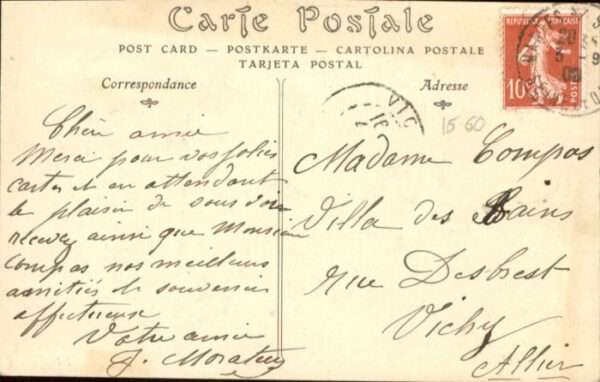 Carte Postale
POST CARD — POSTKARTE — CARTOLINA POSTALE
TARJETA POSTAL
Correspondance
Chère amie
Merci pour vos jolies
cartes et en attendant
le plaisir de vous voir
recevez ainsi que Monsieur
Compas nos meilleurs
amitiés et souvenirs
affectueux
Votre amie
J.
Adresse
REPUBLIQUE FRANÇAISE
10
VIC
15 60
Madame Compas
Villa des Bains
rue Desbrest
Vichy
Allier